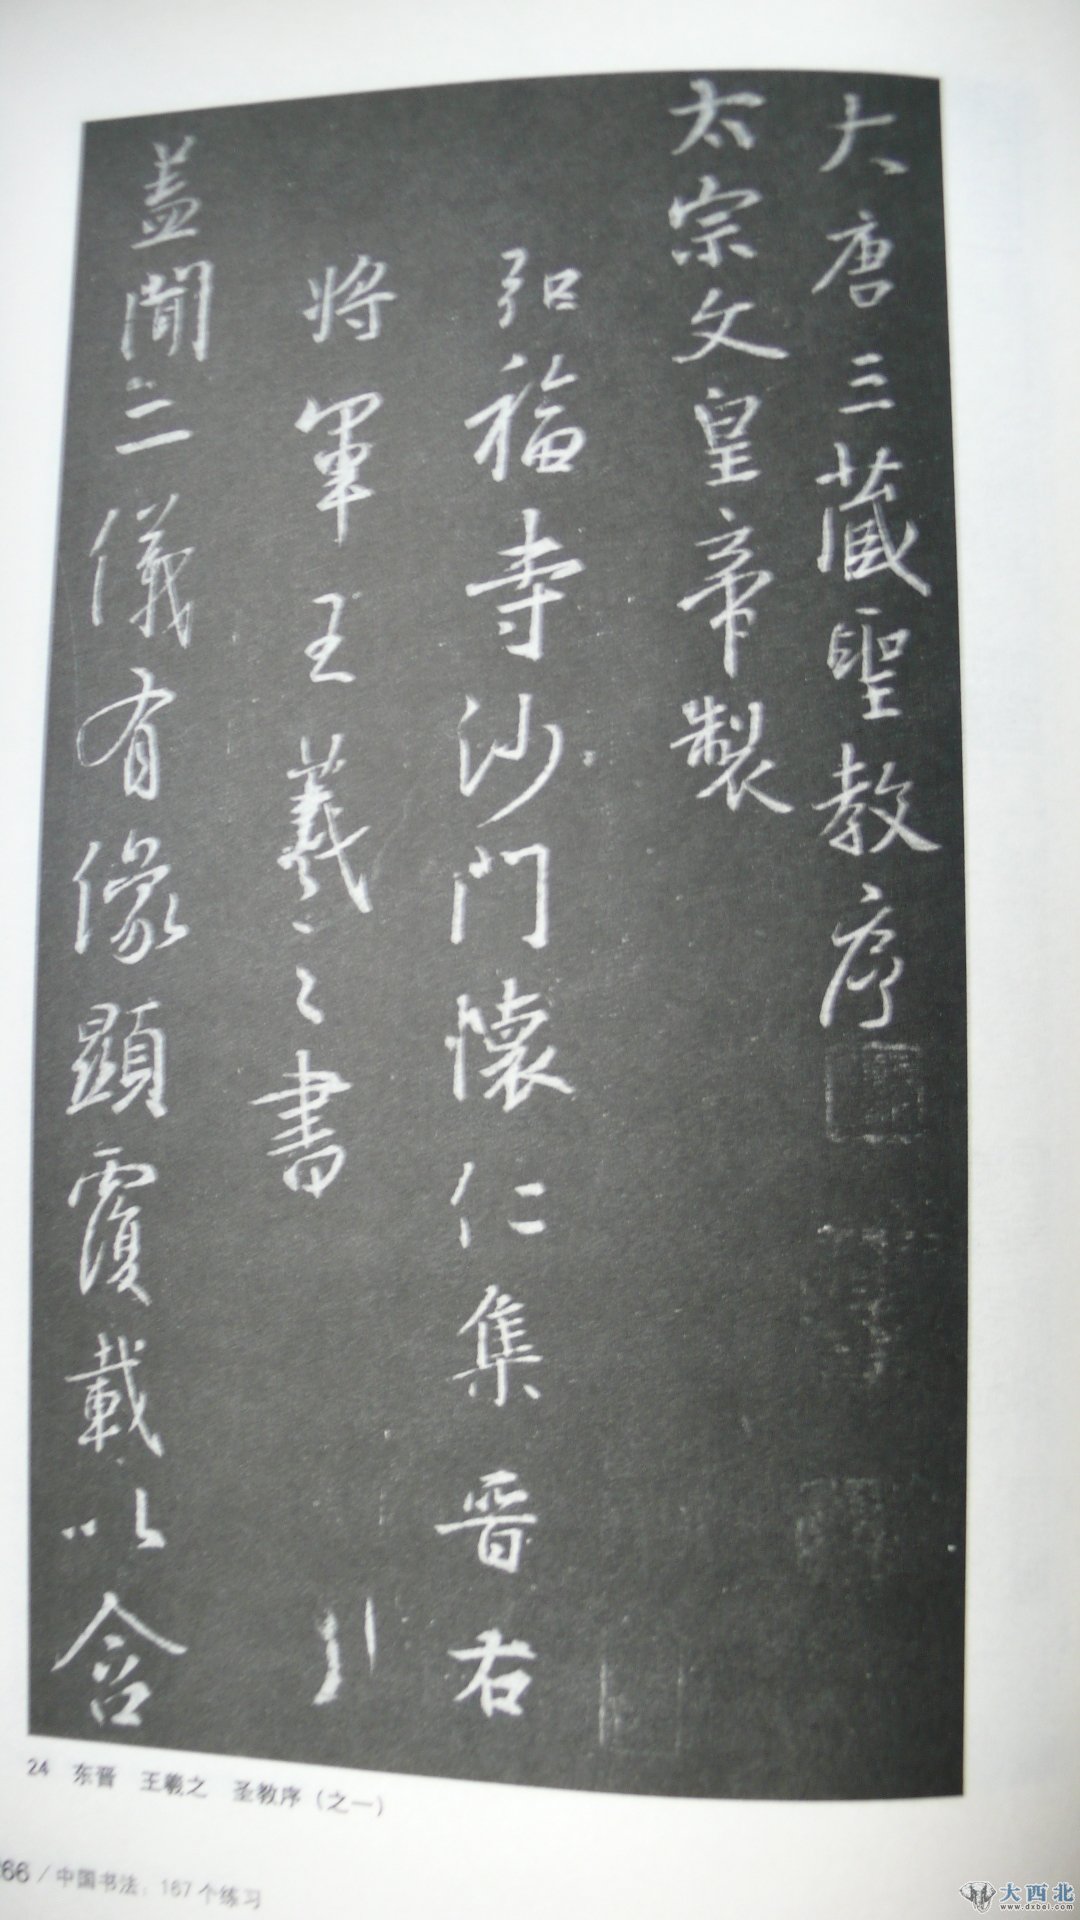 大唐三藏聖教序
太宗文皇帝製
弘福寺沙門懷仁集晉右
將軍王羲之書
蓋聞二儀有像顯覆載以含
24 东晋 王羲之 圣教序（之一）
66 / 中国书法：167个练习
大西北
www.dxbei.com